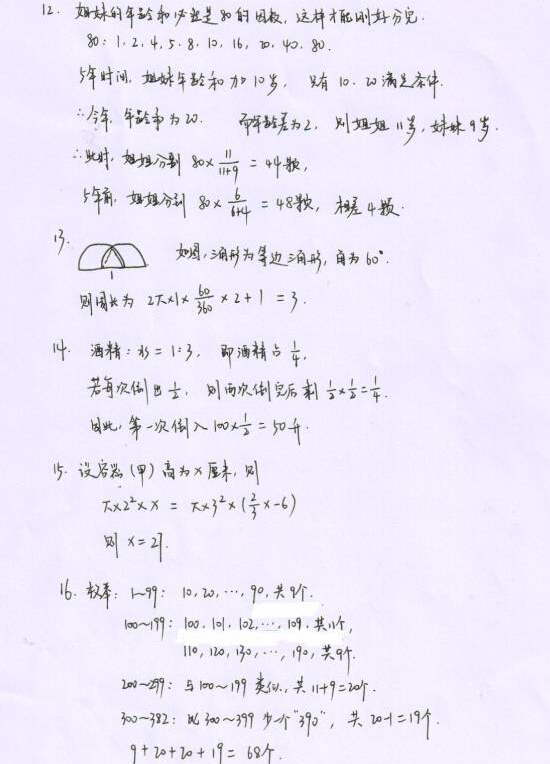 12. 姐妹的年龄和必然是80的因数, 这样才能刚好分完.
80: 1, 2, 4, 5, 8, 10, 16, 20, 40, 80.
5年时间, 姐妹年龄和加10岁, 只有10、20满足条件.
∴今年, 年龄和为20. 而年龄差为2, 则姐姐11岁, 妹妹9岁.
∴此时, 姐姐分到 80×11/(11+9) = 44颗,
5年前, 姐姐分到 80×6/(6+4) = 48颗, 相差4颗.
13. 如图, 三角形为等边三角形, 角为60°.
1
则周长为 2π×1×60/360×2+1 = 3.
14. 酒精:水=1:3, 即酒精占1/4,
若每次倒出1/2, 则两次倒完后剩1/2×1/2=1/4.
因此, 第一次倒入100×1/2=50升.
15. 设容器(甲)高为x厘米, 则
π×2²×x = π×3²×(2/3x-6)
则 x=27.
16. 枚举: 1~99: 10, 20, …, 90, 共9个.
100~199: 100, 101, 102, …, 109, 共11个,
110, 120, 130, …, 190, 共9个.
200~299: 与100~199类似, 共11+9=20个.
300~382: 比300~399少一个"390", 共20-1=19个.
9+20+20+19=68个.